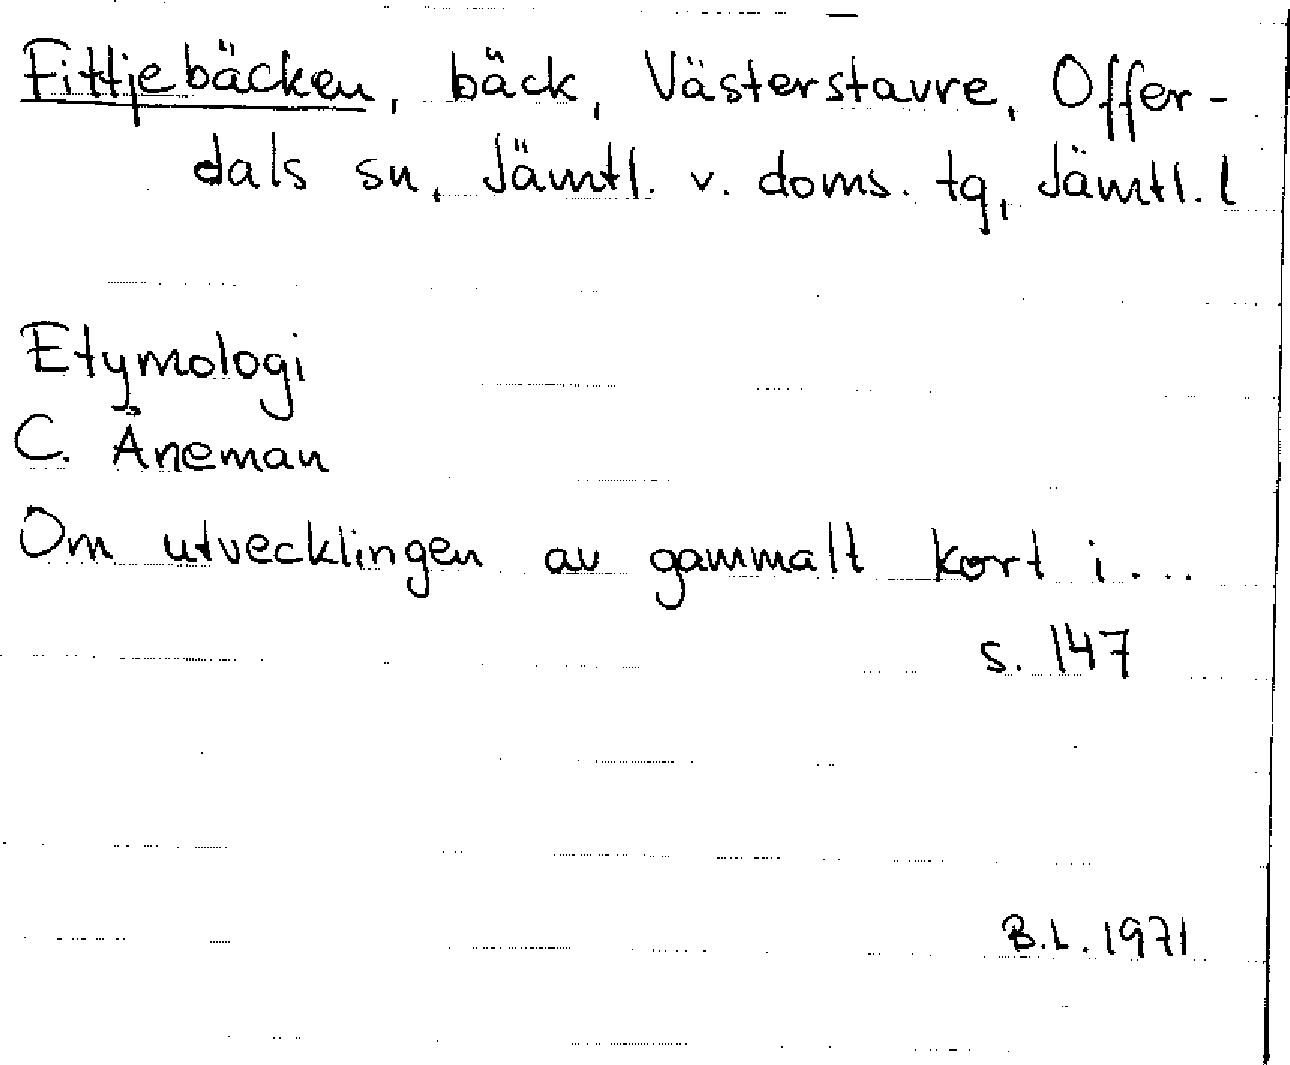 Fittjebäcken, bäck, Västerstavre, Offer-
dals sn, Jämtl. v. doms. tg, Jämtl. l
Etymologi
C. Åneman
Om utvecklingen av gammalt kort i...
s. 147
B.L. 1971